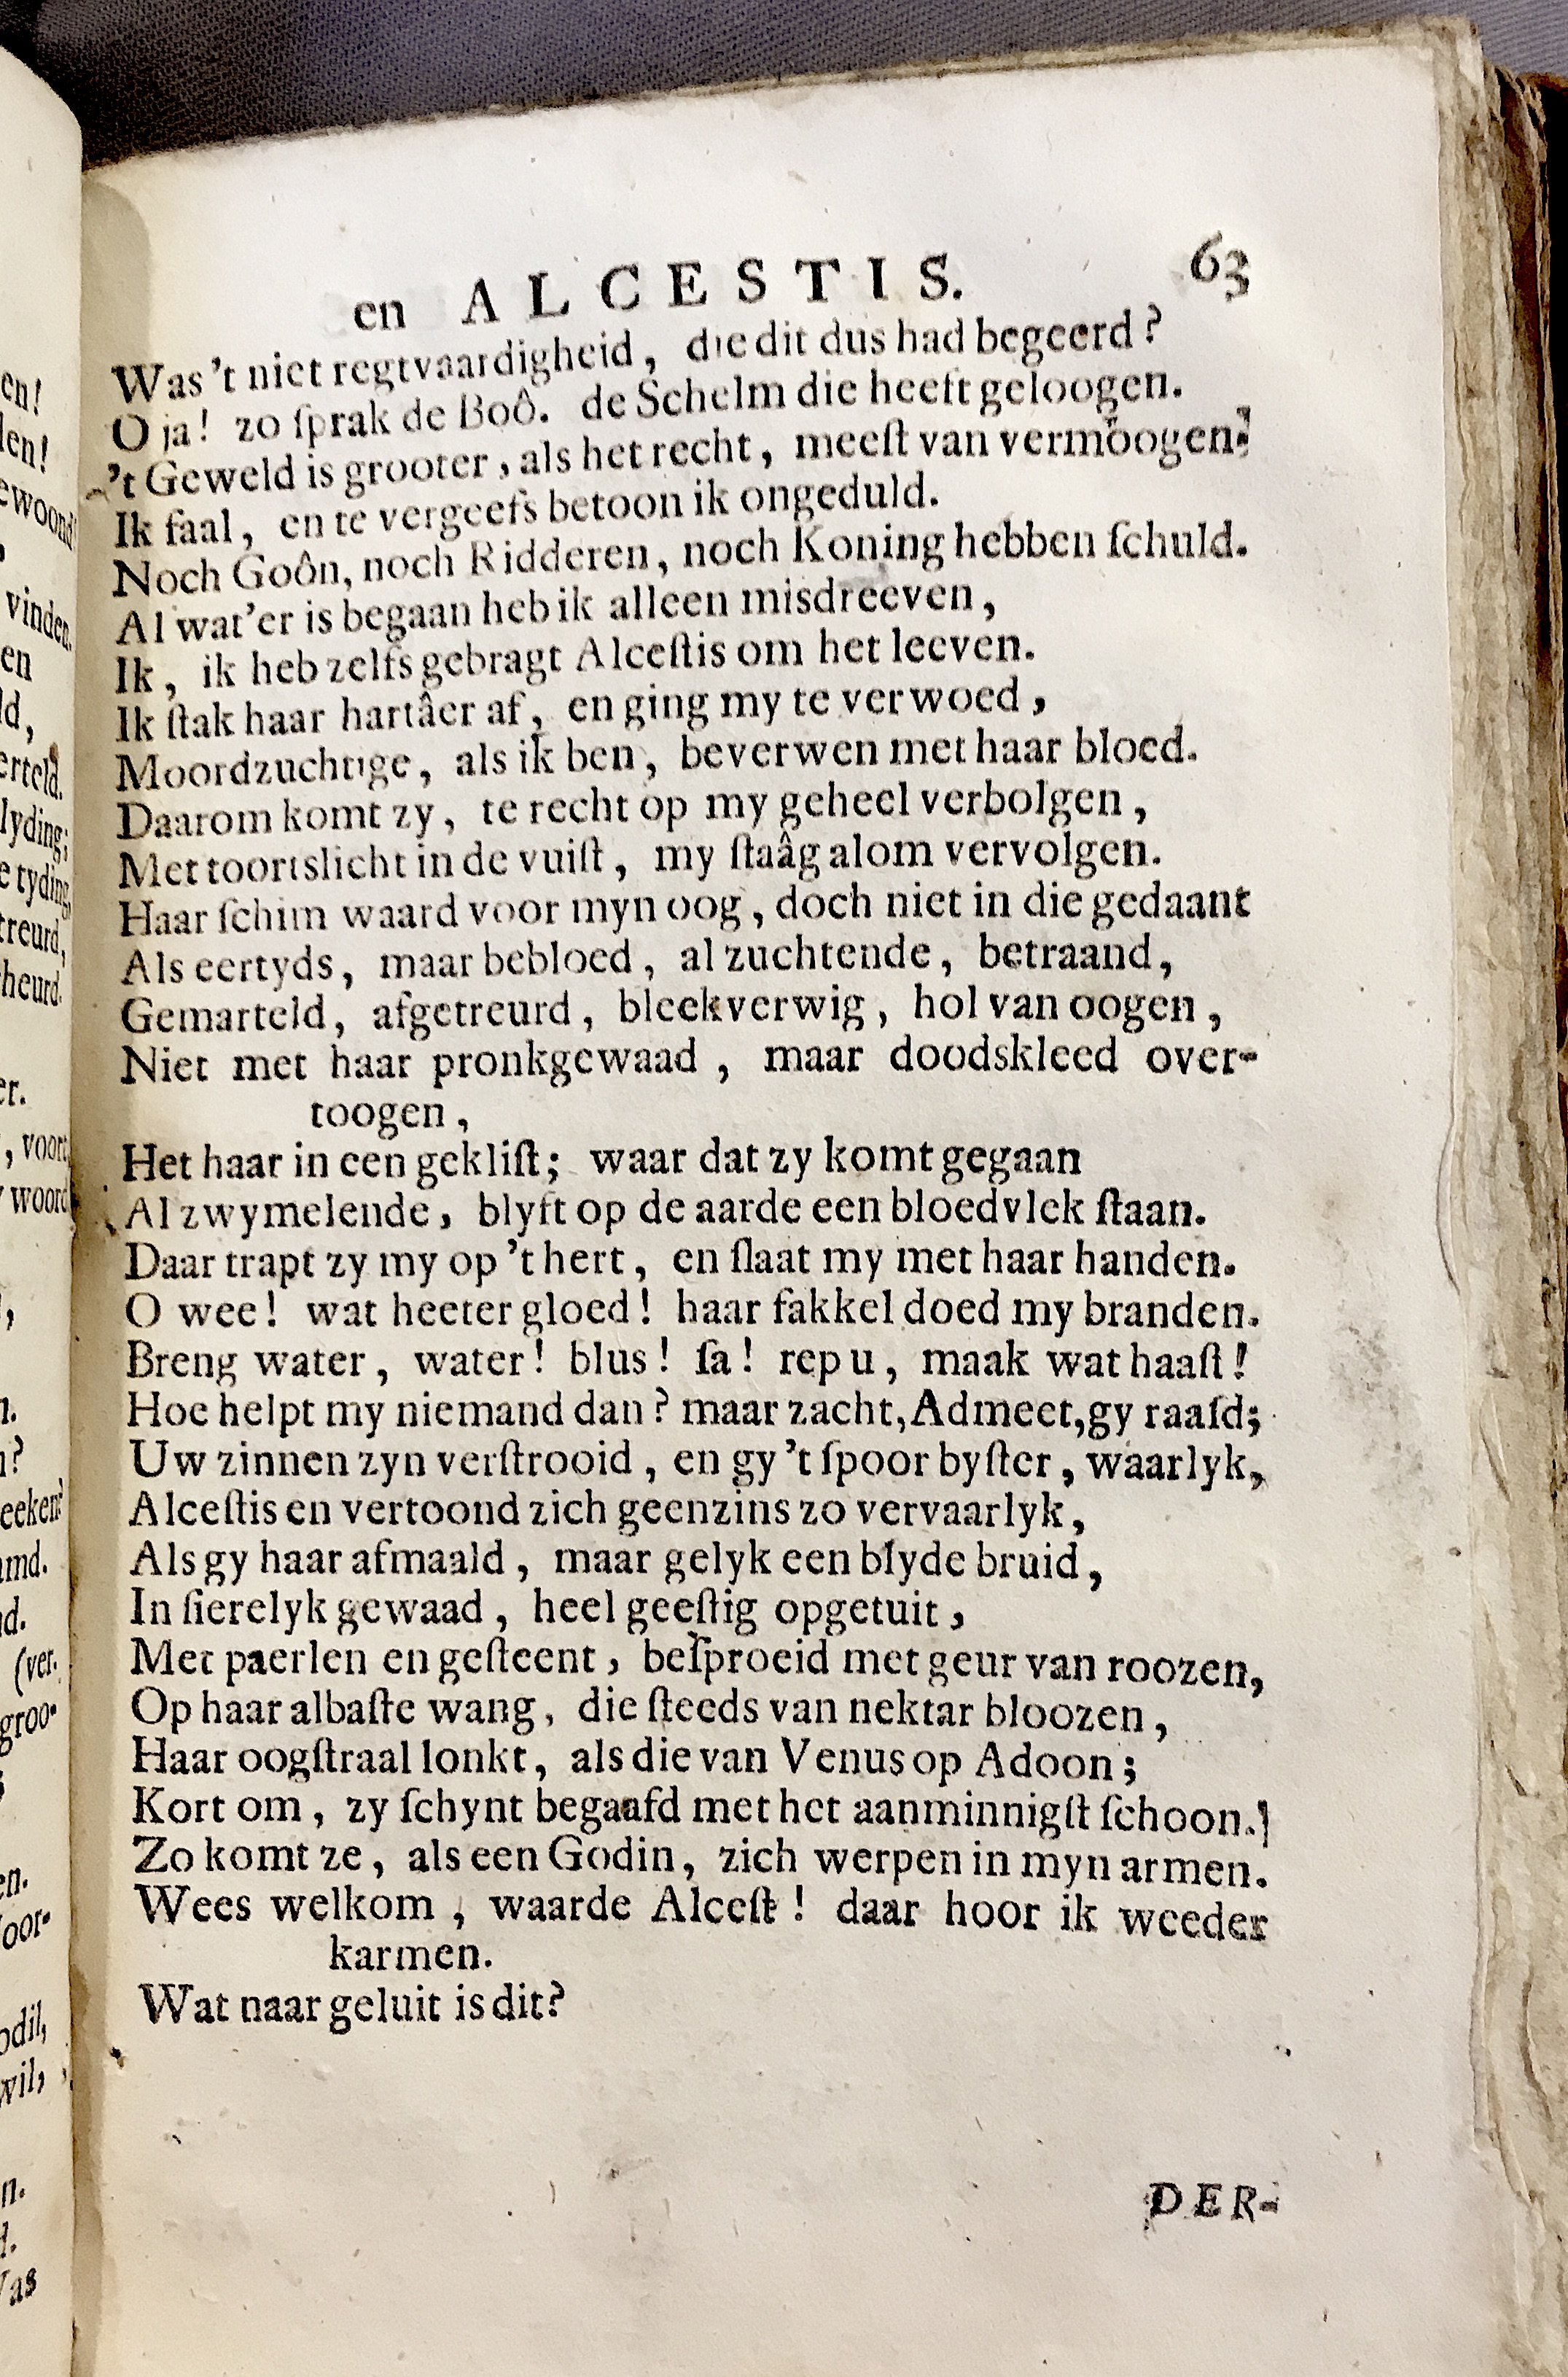 en ALCESTIS. 63
Was 't niet regtvaardigheid, die dit dus had begeerd?
O ja! zo ſprak de Boô. de Schelm die heeft geloogen.
't Geweld is grooter, als het recht, meeſt van vermoogen.
Ik faal, en te vergeefs betoon ik ongeduld.
Noch Goôn, noch Ridderen, noch Koning hebben ſchuld.
Al wat'er is begaan heb ik alleen misdreeven,
Ik, ik heb zelfs gebragt Alceſtis om het leeven.
Ik ſtak haar hartâer af, en ging my te verwoed,
Moordzuchtige, als ik ben, beverwen met haar bloed.
Daarom komt zy, te recht op my geheel verbolgen,
Met toortslicht in de vuiſt, my ſtaâg alom vervolgen.
Haar ſchim waard voor myn oog, doch niet in die gedaant
Als eertyds, maar bebloed, al zuchtende, betraand,
Gemarteld, afgetreurd, bleekverwig, hol van oogen,
Niet met haar pronkgewaad, maar doodskleed over-
toogen,
Het haar in een gekliſt; waar dat zy komt gegaan
Al zwymelende, blyft op de aarde een bloedvlek ſtaan.
Daar trapt zy my op 't hert, en ſlaat my met haar handen.
O wee! wat heeter gloed! haar fakkel doed my branden.
Breng water, water! blus! ſa! rep u, maak wat haaſt!
Hoe helpt my niemand dan? maar zacht, Admeet, gy raaſd;
Uw zinnen zyn verſtrooid, en gy 't ſpoor byſter, waarlyk,
Alceſtis en vertoond zich geenzins zo vervaarlyk,
Als gy haar afmaald, maar gelyk een blyde bruid,
In ſierelyk gewaad, heel geeſtig opgetuit,
Met paerlen en geſteent, beſproeid met geur van roozen,
Op haar albaſte wang, die ſteeds van nektar bloozen,
Haar oogſtraal lonkt, als die van Venus op Adoon;
Kort om, zy ſchynt begaafd met het aanminnigſt ſchoon.
Zo komt ze, als een Godin, zich werpen in myn armen.
Wees welkom, waarde Alceſt! daar hoor ik weeder
karmen.
Wat naar geluit is dit?
DER-